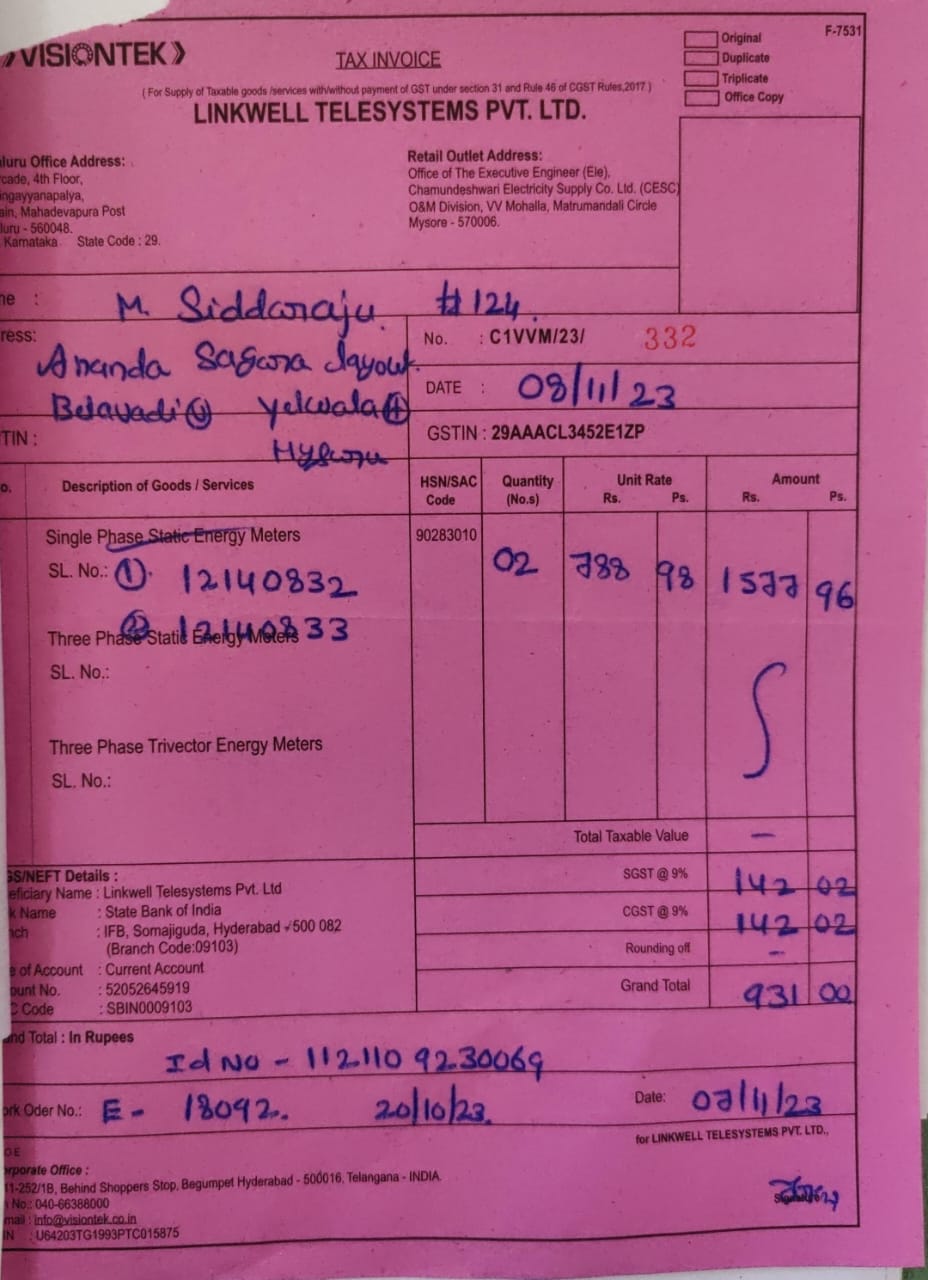 VISIONTEK
TAX INVOICE
Original
Duplicate
Triplicate
Office Copy
F-7531
( For Supply of Taxable goods /services with/without payment of GST under section 31 and Rule 46 of CGST Rules,2017 )
LINKWELL TELESYSTEMS PVT. LTD.
luru Office Address:
cade, 4th Floor,
ingayyanapalya,
ain, Mahadevapura Post
luru - 560048.
Karnataka State Code : 29.
Retail Outlet Address:
Office of The Executive Engineer (Ele),
Chamundeshwari Electricity Supply Co. Ltd. (CESC)
O&M Division, VV Mohalla, Matrumandali Circle
Mysore - 570006.
me : M. Siddaraju #124,
ress: Ananda Sagara layout
Belavadi (V) Yelwala (H)
Mysuru
No. : C1VVM/23/ 332
DATE : 08/11/23
TIN :
GSTIN : 29AAACL3452E1ZP
o. Description of Goods / Services HSN/SAC Code Quantity (No.s) Unit Rate Rs. Ps. Amount Rs. Ps.
Single Phase Static Energy Meters 90283010 02 788 98 1577 96
SL. No.: ①. 12140832
② 12140833
Three Phase Static Energy Meters
SL. No.:
Three Phase Trivector Energy Meters
SL. No.:
Total Taxable Value —
SGST @ 9% 142 02
CGST @ 9% 142 02
Rounding off -
Grand Total 931 00
GS/NEFT Details :
eficiary Name : Linkwell Telesystems Pvt. Ltd
k Name : State Bank of India
nch : IFB, Somajiguda, Hyderabad - 500 082
(Branch Code:09103)
e of Account : Current Account
ount No. : 52052645919
C Code : SBIN0009103
nd Total : In Rupees
Id No - 1121109230069
ork Oder No.: E - 18092. 20/10/23.
Date: 07/11/23
for LINKWELL TELESYSTEMS PVT. LTD.,
OE
rporate Office :
11-252/1B, Behind Shoppers Stop, Begumpet Hyderabad - 500016, Telangana - INDIA.
No.: 040-66388000
mail : info@visiontek.co.in
IN : U64203TG1993PTC015875